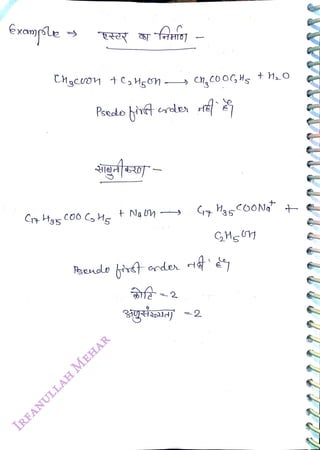 Example → एस्टर का निर्माण –
CH3COOH + C2H5OH → CH3COOC2H5 + H2O
Psedo first order नहीं है।
साबुनीकरण –
C17H35COOC2H5 + NaOH → C17H35COONa+ +
C2H5OH
Psedo first order नहीं है।
कोटि = 2
अणुसंख्यता = 2
IRFANULLAH MEHAR